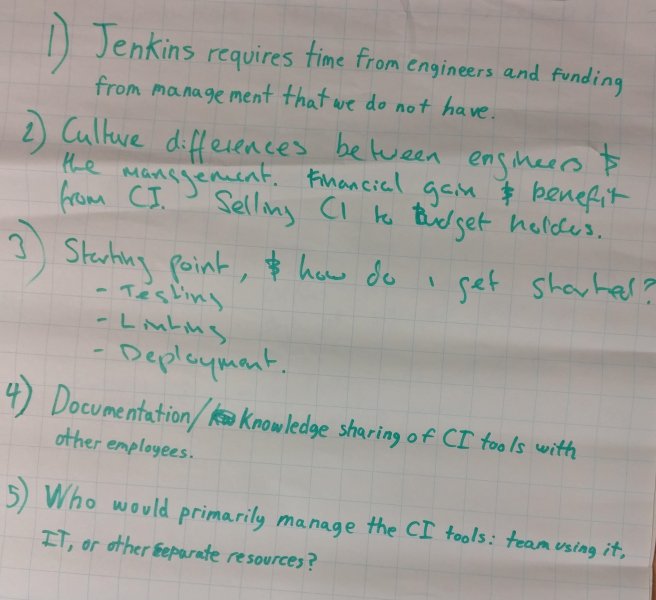 1) Jenkins requires time from engineers and funding
from management that we do not have.
2) Culture differences between engineers &
the management. Financial gain & benefit
from CI. Selling CI to budget holders.
3) Starting point, & how do i get started?
- Testing
- Linting
- Deployment.
4) Documentation/Knowledge sharing of CI tools with
other employees.
5) Who would primarily manage the CI tools: team using it,
IT, or other separate resources?